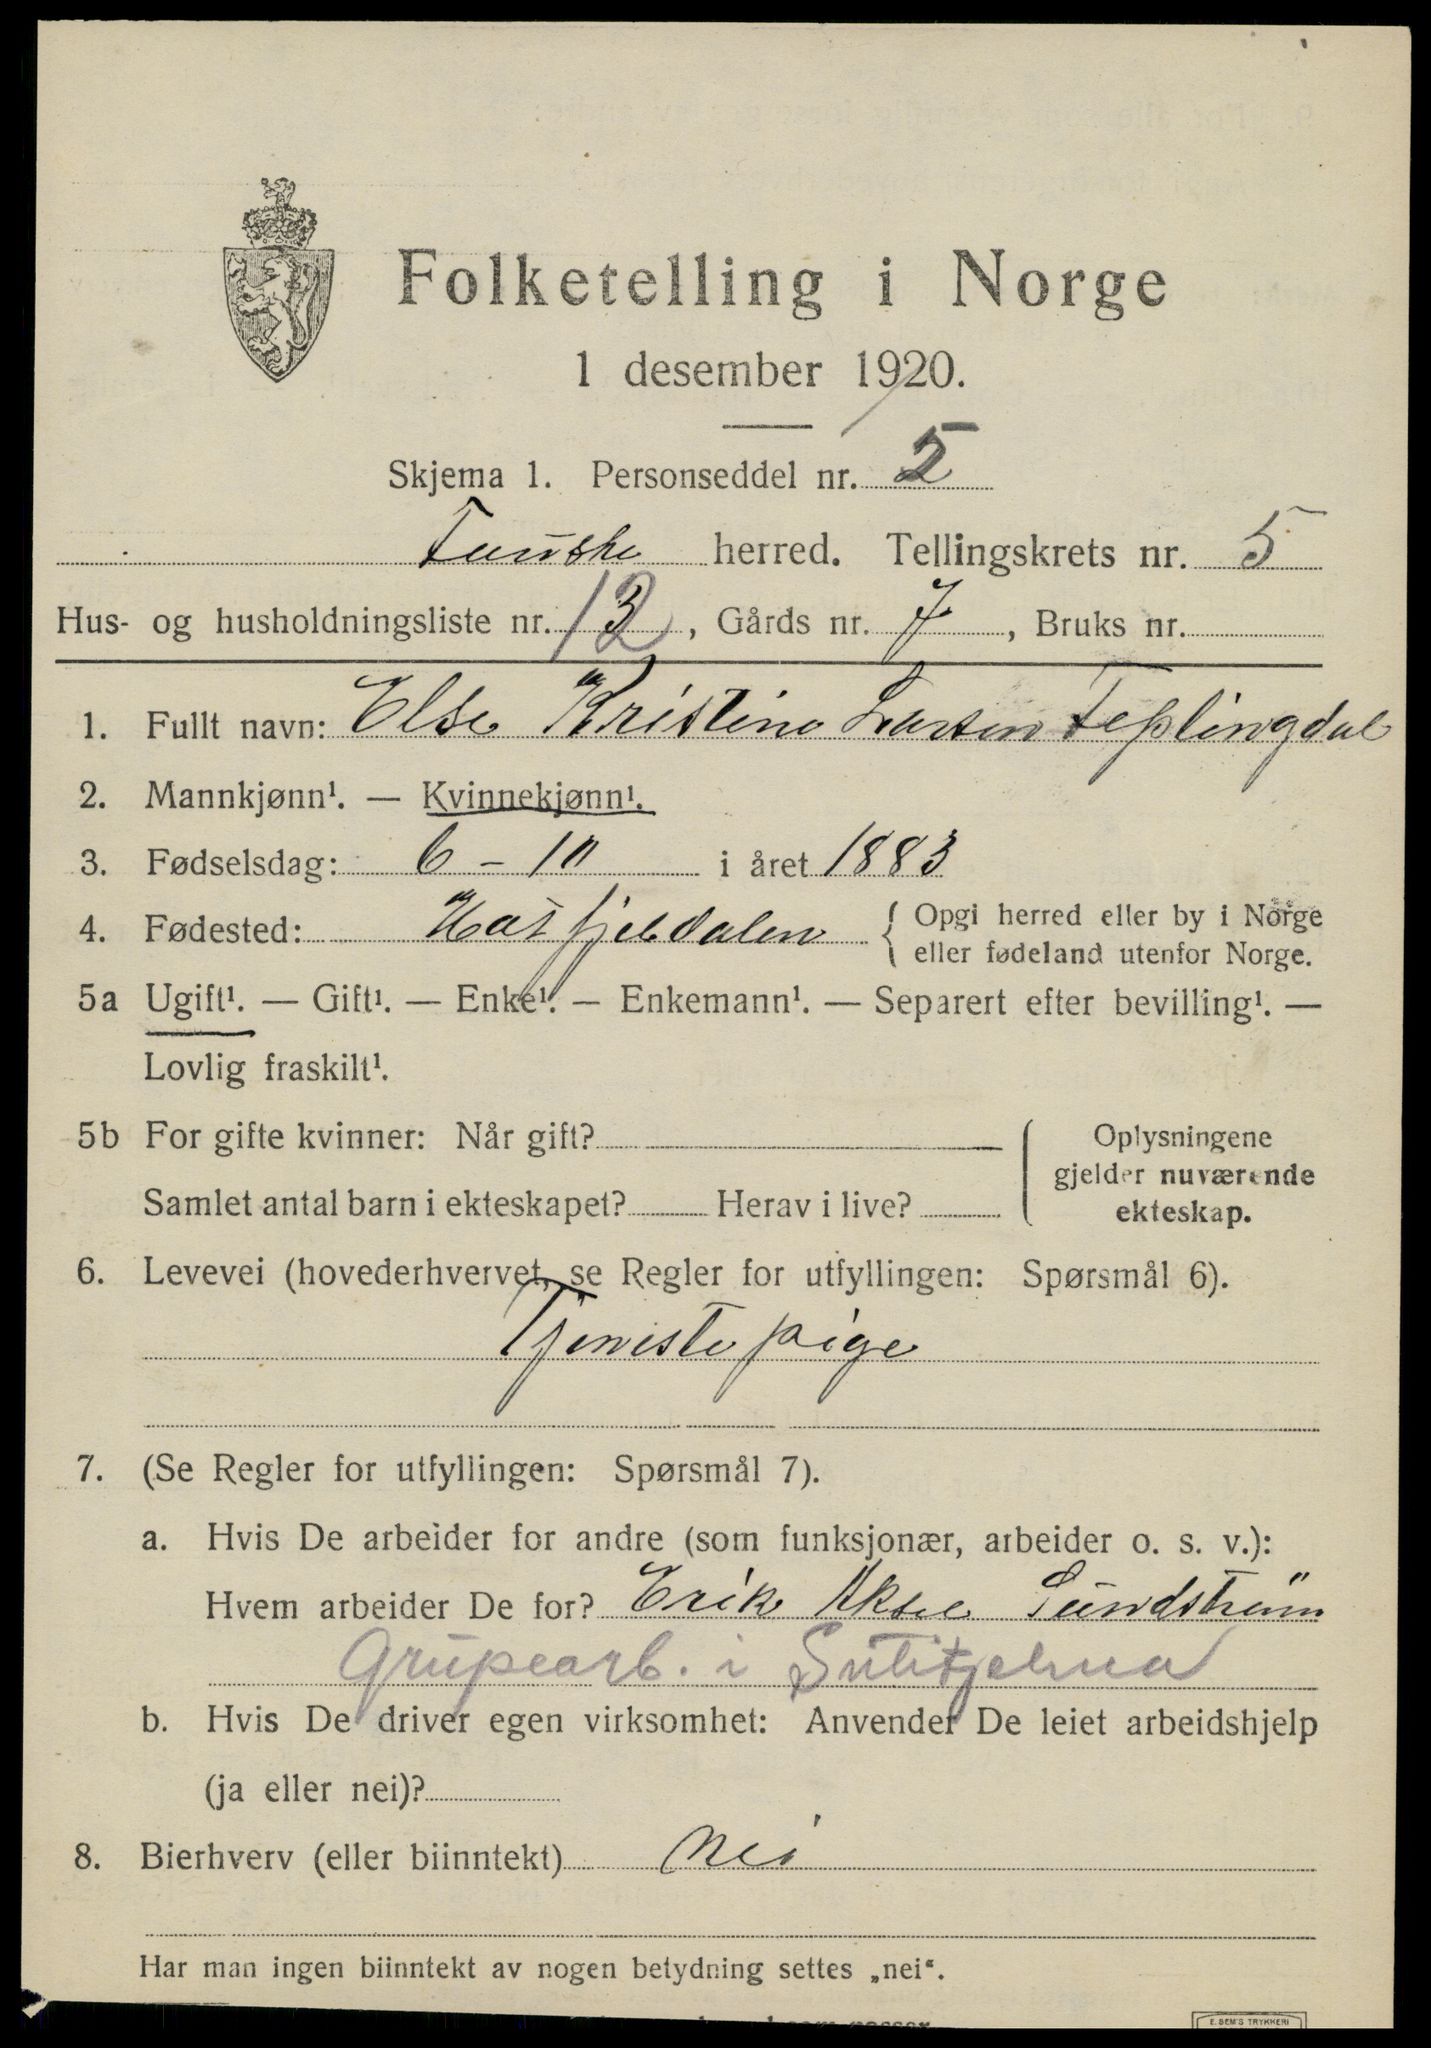 Folketelling i Norge
1 desember 1920.
Skjema 1. Personseddel nr. 5
Fauske herred. Tellingskrets nr. 5
Hus- og husholdningsliste nr. 12, Gårds nr. 7, Bruks nr.
1. Fullt navn: Else Kristine Larsen Teplingdal
2. Mannkjønn¹. — Kvinnekjønn¹.
3. Fødselsdag: 6 - 10 i året 1883
4. Fødested: Hatfjeldalen { Opgi herred eller by i Norge
eller fødeland utenfor Norge.
5a Ugift¹. — Gift¹. — Enke¹. — Enkemann¹. — Separert efter bevilling¹. —
Lovlig fraskilt¹.
5b For gifte kvinner: Når gift?
Samlet antal barn i ekteskapet? Herav i live?
Oplysningene
gjelder nuværende
ekteskap.
6. Levevei (hovederhvervet, se Regler for utfyllingen: Spørsmål 6).
Tjenestepige
7. (Se Regler for utfyllingen: Spørsmål 7).
a. Hvis De arbeider for andre (som funksjonær, arbeider o. s. v.):
Hvem arbeider De for? Erik Aksel Sundström
Grupearb. i Sulitjelma
b. Hvis De driver egen virksomhet: Anvender De leiet arbeidshjelp
(ja eller nei)?
8. Bierhverv (eller biinntekt) nei
Har man ingen biinntekt av nogen betydning settes „nei“.
E. SEM'S TRYKKERI